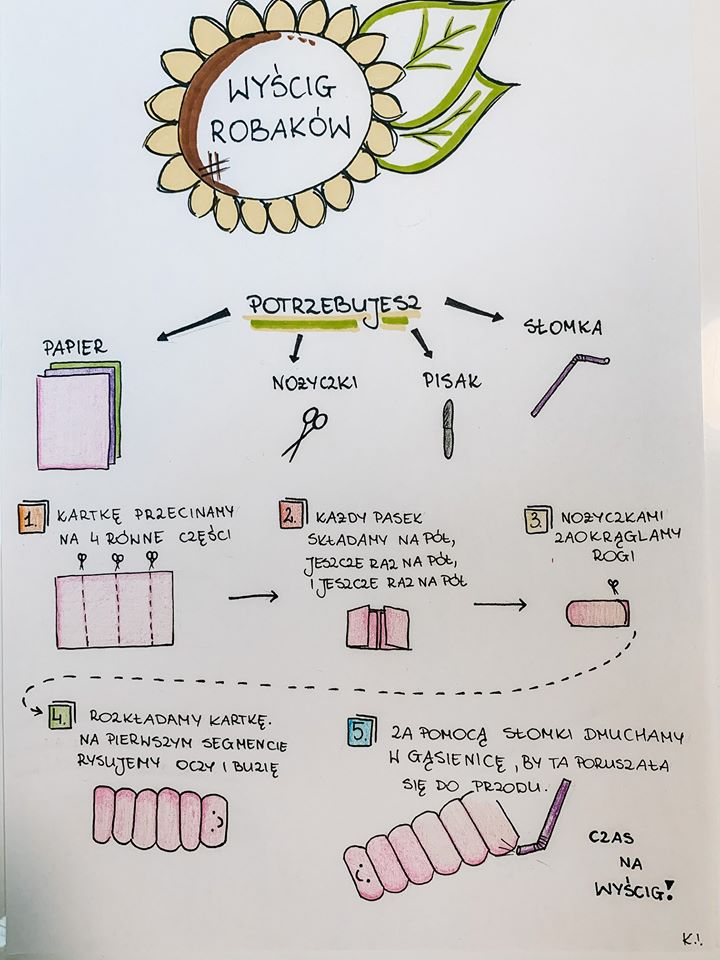 WYŚCIG
ROBAKÓW
POTRZEBUJESZ
PAPIER
NOŻYCZKI
PISAK
SŁOMKA
1. KARTKĘ PRZECINAMY
NA 4 RÓWNE CZĘŚCI
2. KAŻDY PASEK
SKŁADAMY NA PÓŁ,
JESZCZE RAZ NA PÓŁ,
I JESZCZE RAZ NA PÓŁ
3. NOŻYCZKAMI
ZAOKRĄGLAMY
ROGI
4. ROZKŁADAMY KARTKĘ.
NA PIERWSZYM SEGMENCIE
RYSUJEMY OCZY I BUZIĘ
5. ZA POMOCĄ SŁOMKI DMUCHAMY
W GĄSIENICĘ, BY TA PORUSZAŁA
SIĘ DO PRZODU.
CZAS
NA
WYŚCIG!
K.!.